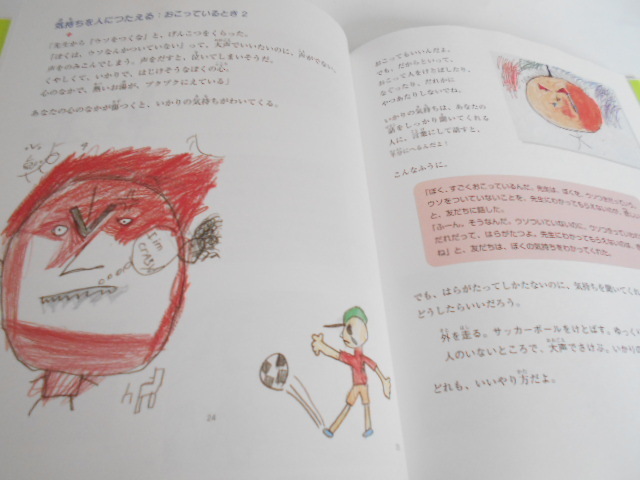 気持ちを人につたえる:おこっているとき2
「先生から「ウソをつくな」と、げんこつをくらった。
「ぼくは、ウソなんかついていない」って、大声でいいたいのに、声がでない。
声をのみこんでしまう。声をだすと、泣いてしまいそうだ。
くやしくて、いかりで、はじけそうなぼくの心。
心のなかで、熱いお湯が、ブクブクにえている」
あなたの心のなかが傷つくと、いかりの気持ちがわいてくる。
I'm
CRASY
24
おこってもいいんだよ。
でも、だからといって、
おこって人をけとばしたり、
なぐったり、だれかに
やつあたりしないでね。
いかりの気持ちは、あなたの
話をしっかり聞いてくれる
人に、言葉にして話すと、
こんなふうに。
「ぼく、すごくおこっているんだ。先生は、ぼくを、ウソつきだって
ウソをついていないことを、先生にわかってもらえないのが、
と、友だちに話した。
「ふーん、そうなんだ。ウソついていないのに、ウソつきって
だれだって、はらがたつよ。先生にわかってもらえないのは、
ね」と、友だちは、ぼくの気持ちをわかってくれた。
でも、はらがたってしかたないのに、気持ちを聞いてくれ
どうしたらいいだろう。
外を走る。サッカーボールをけとばす。ゆっく
人のいないところで、大声でさけぶ。いかりの
どれも、いいやり方だよ。